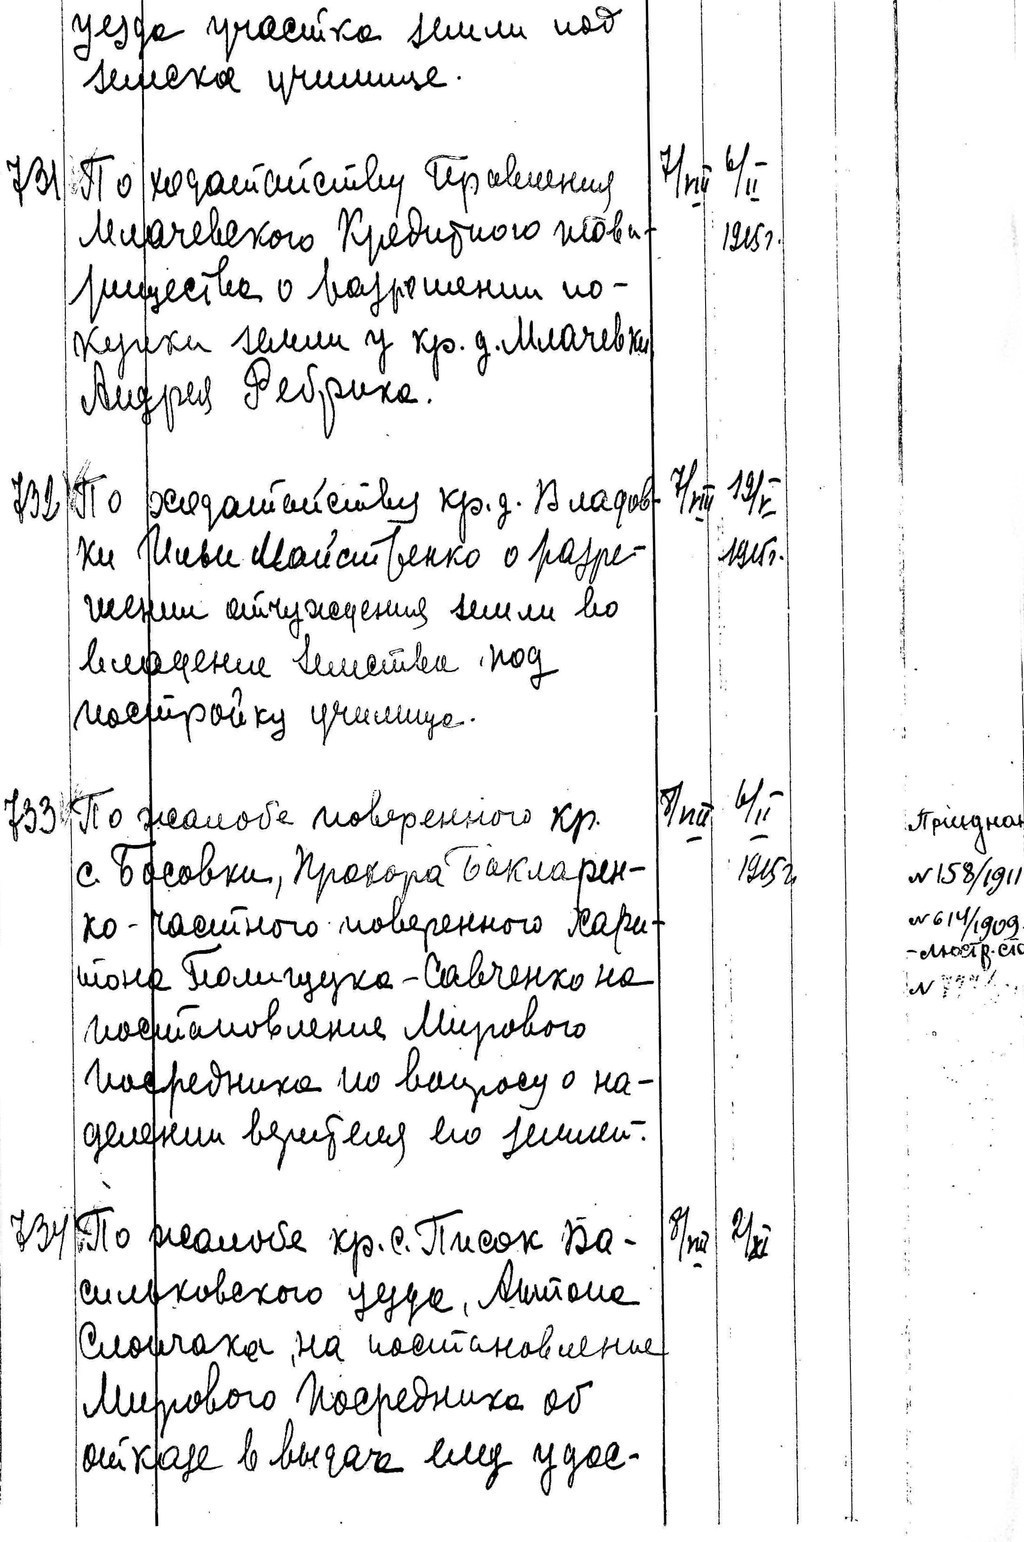 уезда участка земли под
земска училище.
731 По ходатайству Правления 7/VIII 6/II
Млачевского Кредитного това- 1915г.
рищества о разрешении по-
купки земли у кр. д. Млачевки
Андрея Ребрика.
732 По ходатайству кр. д. Владов- 7/VIII 19/V
ки Ильи Майстренко о разре- 1915г.
шении отчуждения земли во
владение земства под
постройку училища.
733 По жалобе поверенного кр. 8/VIII 6/II
с. Босовки, Прохора Бакларен- 1915г.
ко - частного поверенного Хари-
тона Полищука - Савченко на
постановление Мирового
посредника по вопросу о на-
делении верителя его землей.
Приєднан
№158/1911
№614/1909
№
734 По жалобе кр. с. Писок Ва- 8/VIII 2/XI
сильковского уезда, Антона
Слончака, на постановление
Мирового Посредника об
отказе в выдаче ему удос-